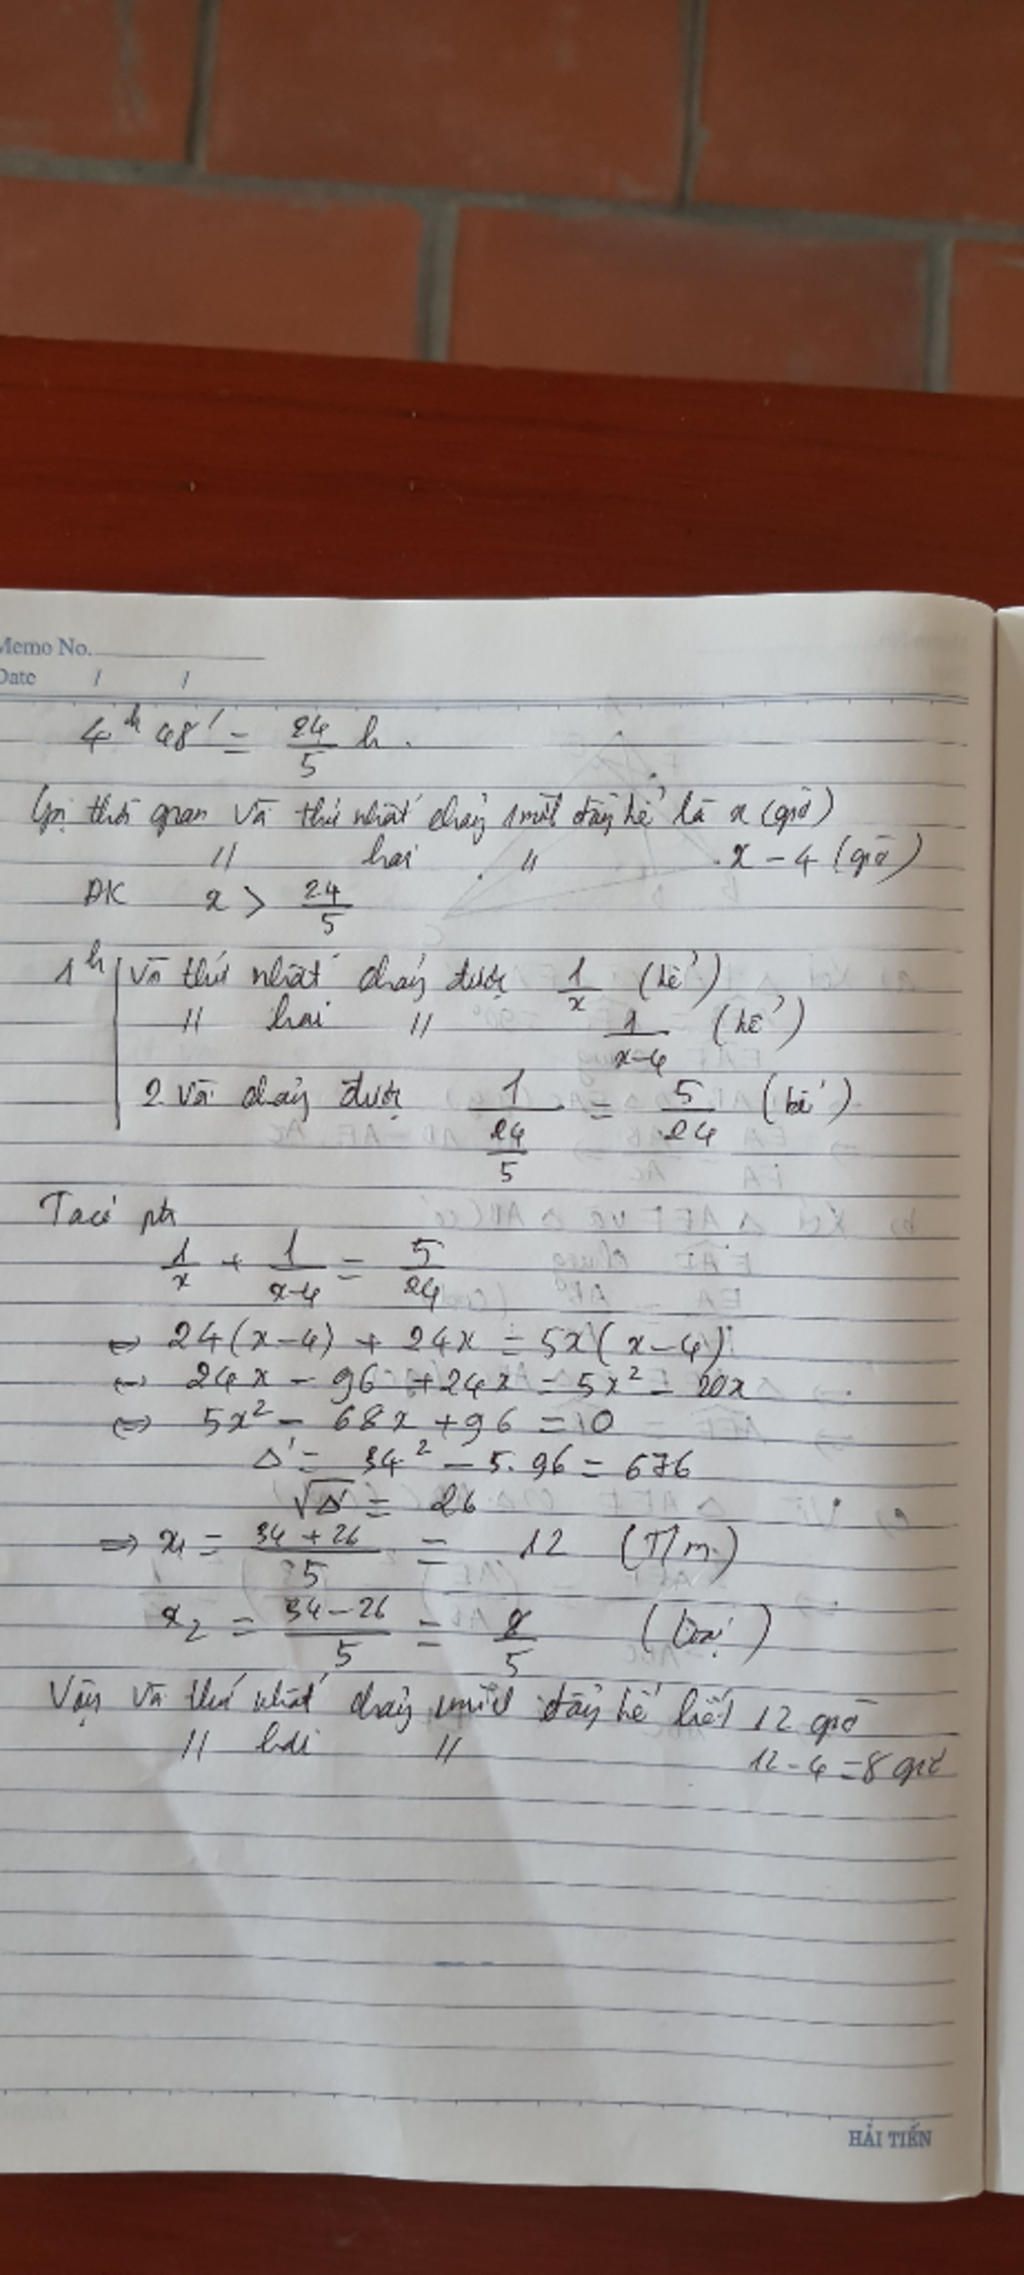 Memo No.
Date / /
4h 48' = 24/5 h.
Gọi thời gian Vòi thứ nhất chảy 1 mình đầy bể là x (giờ)
// hai // x - 4 (giờ)
ĐK x > 24/5
1h | Vòi thứ nhất chảy được 1/x (bể)
// hai // 1/(x-4) (bể)
2 Vòi chảy được 1/(24/5) = 5/24 (bể)
Ta có pt
1/x + 1/(x-4) = 5/24
⇔ 24(x-4) + 24x = 5x(x-4)
⇔ 24x - 96 + 24x = 5x² - 20x
⇔ 5x² - 68x + 96 = 0
Δ' = 34² - 5.96 = 676
√Δ' = 26
⇒ x₁ = (34+26)/5 = 12 (T/m)
x₂ = (34-26)/5 = 8/5 (loại)
Vậy Vòi thứ nhất chảy 1 mình đầy bể hết 12 giờ
// hai // 12-4=8 giờ
HẢI TIẾN